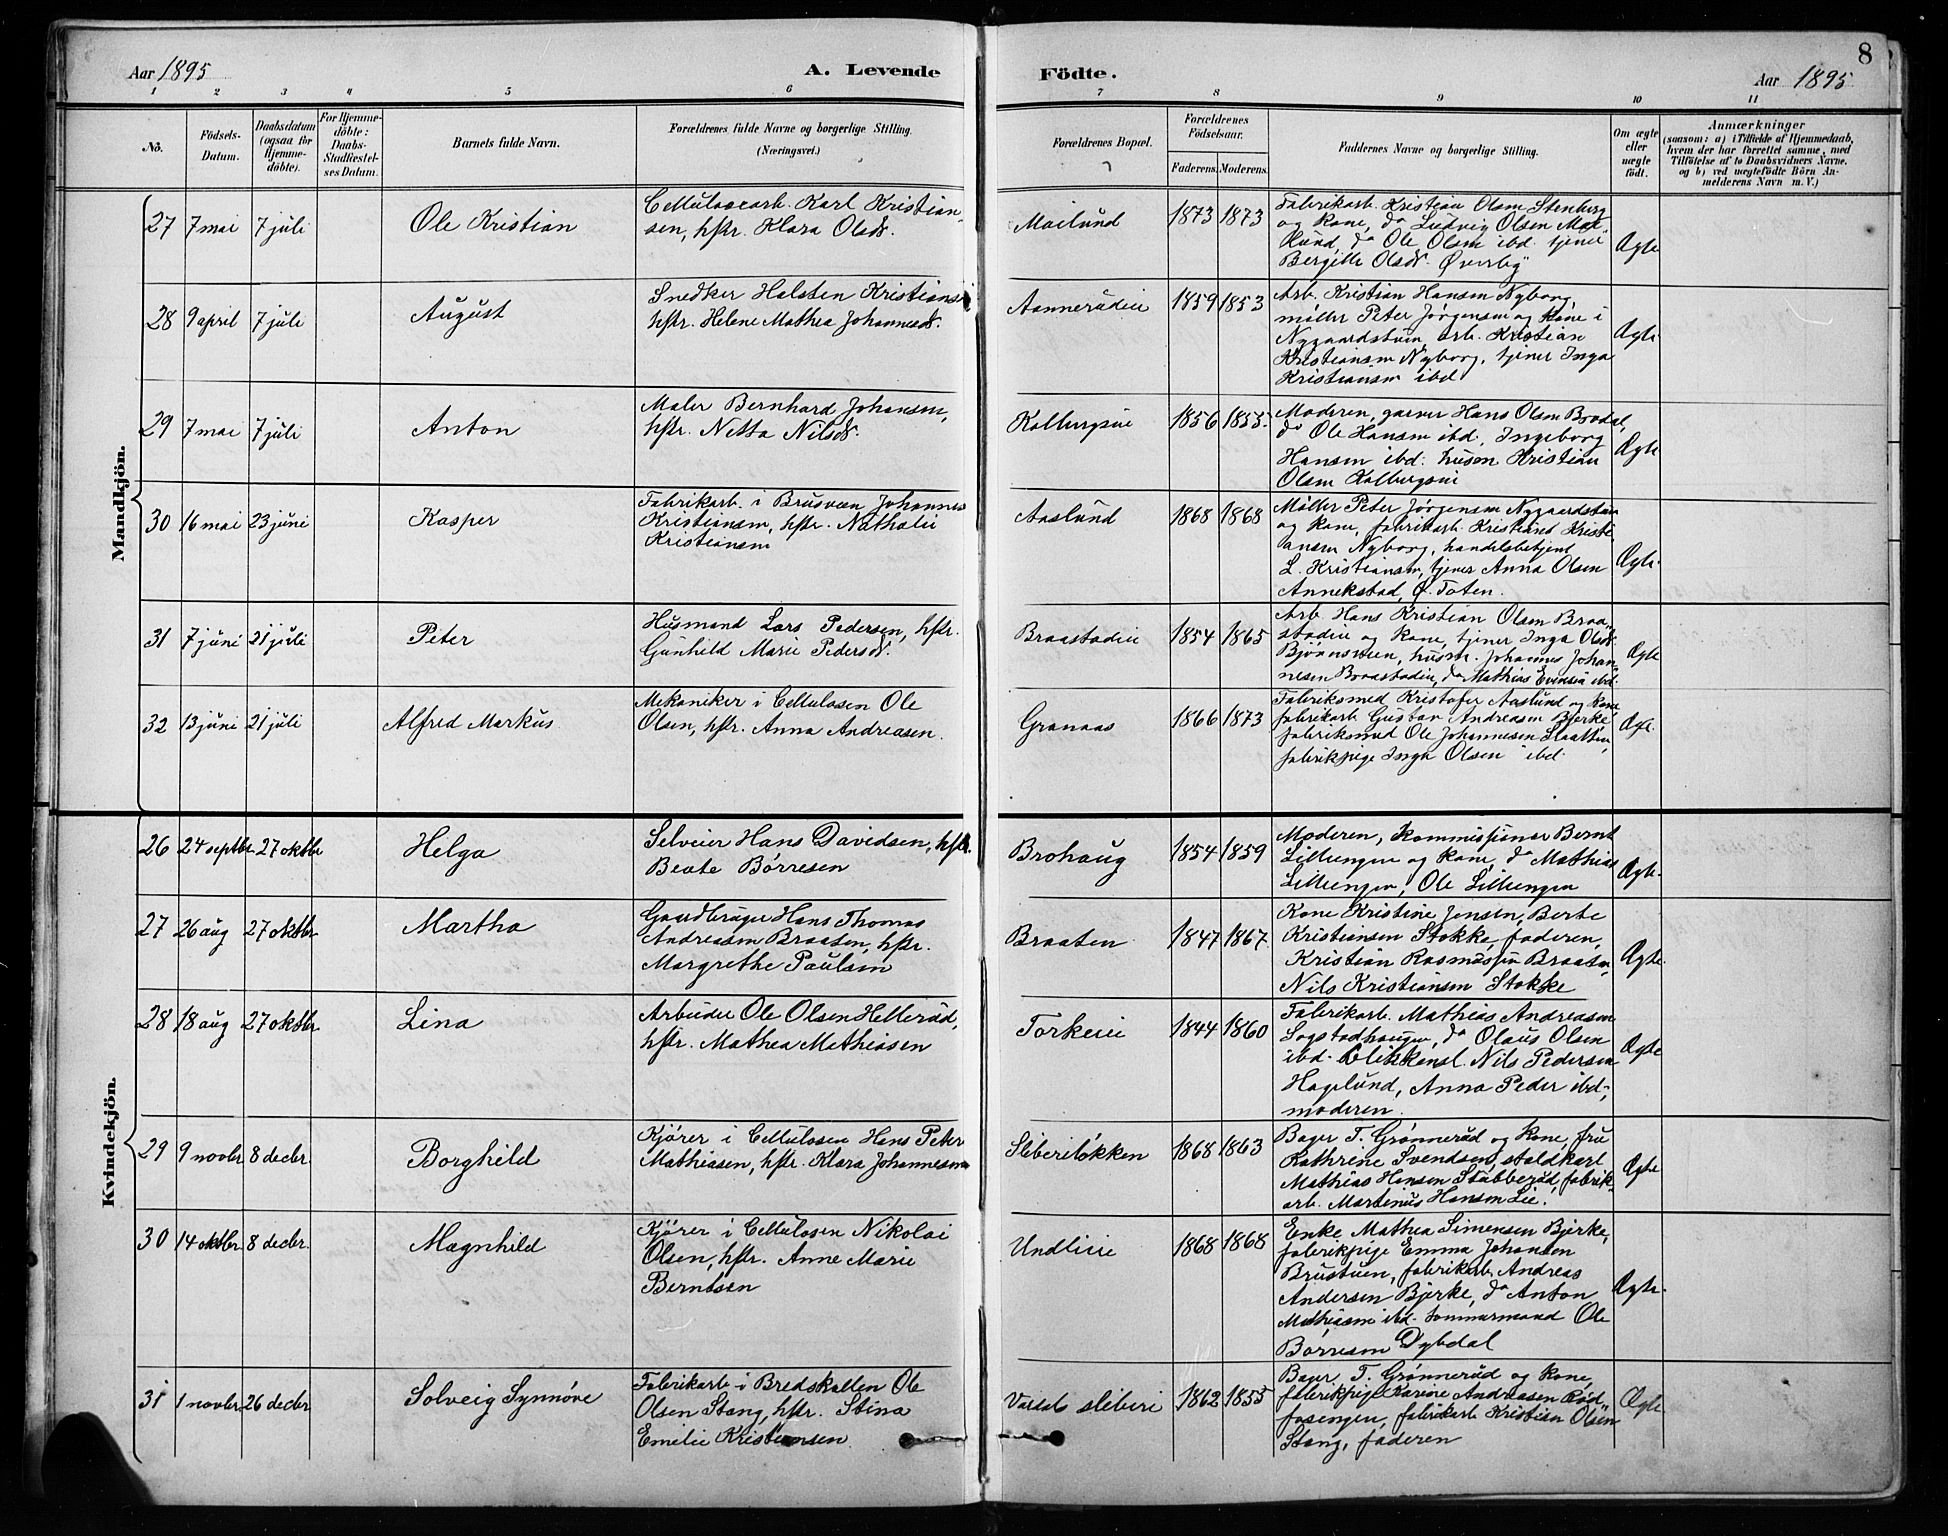 8
Aar 1895
A. Levende Födte.
Aar 1895
1 2 3 4 5 6 7 8 9 10 11
Nô.
Födsels-
Datum.
Daabsdatum
(ogsaa for
Hjemme-
döbte).
For Hjemme-
döbte:
Daabs-
Stadfæstel-
ses Datum.
Barnets fulde Navn.
Forældrenes fulde Navne og borgerlige Stilling.
(Næringsvei.)
Forældrenes Bopæl.
Forældrenes
Födselsaar.
Faderens. Moderens.
Faddernes Navne og borgerlige Stilling.
Om ægte
eller
uægte
födt.
Anmærkninger
(saasom: a) i Tilfælde af Hjemmedaab,
hvem der har forrettet samme, med
Tilföielse af to Daabsvidners Navne.
og b) ved uægtefödte Börn An-
melderens Navn m. V.)
Mandkjön.
27 7 mai 7 juli
Ole Kristian
Cellulosearb. Karl Kristian-
sen, hstr. Klara Olsdr.
Mailund
1873 1873
Fabrikarb. Kristian Olsen Stenberg
og kone, do Ludvig Olsen Mai-
lund, do Ole Olsen ibd. tjener
Bergitte Olsdr. Øverby
Ægte
28 9 april 7 juli
August
Snedker Halsten Kristiansen
hstr. Helene Mathea Johannesdr.
Aannerudeie
1859 1853
Arb. Kristian Hansen Nyborg,
møller Peter Jørgensen og kone i
Nygaardstuen, arb. Kristian
Kristiansen Nyborg, tjener Inga
Kristiansen ibd
Ægte.
29 7 mai 7 juli
Anton
Maler Bernhard Johansen,
hstr. Netta Nilsdr.
Kolbergseie
1856 1855.
Moderen, garver Hans Olsen Brodal,
do Ole Hansen ibd, Ingeborg
Hansen ibd. husm Kristian
Olsen Kolbergseie
Ægte
30 16 mai 23 juni
Kasper
Fabrikarb. i Brusveen Johannes
Kristiansen, hstr. Nathalie
Kristiansen
Aaslund
1868 1868
Møller Peter Jørgensen Nygaardstuen
og kone, fabrikarb. Kristians Kristi-
ansen Nyborg, handelsbetjent
L. Kristiansen, tjener Anna Olsen
Annekstad, Ø. Toten.
Ægte.
31 7 juni 21 juli
Peter
Husmand Lars Pedersen, hstr.
Gunhild Marie Pedersdr.
Braastadeie
1854 1865
Arb Hans Kristian Olsen Braa-
stadeie og kone, tjener Inga Olsdr.
Bjørnsveen, husm. Johannes Johan-
nesen Braastadeie, do Mathias Evensen ibd.
Ægte
32 13 juni 21 juli
Alfred Markus
Mekaniker i Cellulosen Ole
Olsen, hstr. Anna Andreasen.
Granaas
1866 1873
Fabriksmed Kristofer Aaslund og kone
fabrikarb Gustav Andreasen Bjerke,
fabriksmed Ole Johannesen Slaatten,
fabrikpige Inga Olsen ibd.
Ægte.
Kvindekjön.
26 24 septbr 27 oktbr
Helga
Selveier Hans Davidsen, hstr.
Beate Børresen
Brohaug
1854 1859
Moderen, kommissioner Bernt
Lilleengen og kone, do Mathias
Lillengen, Ole Lillengen
Ægte.
27 26 aug 27 oktbr
Martha
Gaardbruger Hans Thomas
Andreasen Braaten, hstr.
Margrethe Paulsen
Braaten
1847 1867
Kone Kristine Jensen, Berte
Kristiansen Stokke, faderen,
Kristian Rasmussen Braaten,
Nils Kristiansen Stokke
Ægte.
28 18 aug 27 oktbr
Lina
Arbeider Ole Olsen Hellerud,
hstr. Mathea Mathiasen
Torkerie
1844 1860
Fabrikarb. Mathias Andreasen
Sogstadhaugen, do Olaus Olsen
ibd. Blikkensl. Nils Pedersen
Hagelund, Anna Peder ibd,
moderen.
Ægte
29 9 novbr 8 decbr.
Borghild
Kjører i Cellulosen Hans Peter
Mathiasen, hstr. Klara Johannesen
Sliberiløkken
1868 1863
Bager T. Grønnerud og kone, fru
Kathrine Svendsen, staldkarl
Mathias Hansen Stubberud, fabrik-
arb. Martinus Hansen Lie.
Ægte
30 14 oktbr. 8 decbr.
Magnhild
Kjører i Cellulosen Nikolai
Olsen, hstr. Anne Marie
Berntsen
Undlieie
1868 1868
Enke Mathea Simensen Bjerke,
fabrikpige Emma Johansen
Brustuen, fabrikarb. Andreas
Andersen Bjerke, do Anton
Mathiasen ibd. tømmermand Ole
Børresen Dybdal
Ægte.
31 1 novbr. 26 decbr
Solveig Synnøve
Fabrikarb i Bredskallen Ole
Olsen Stang, hstr. Stina
Emelie Kristiansen
Vardal sliberi
1862 1855
Bager T. Grønnerud og kone,
fabrikpige Karine Andreasen Rød-
fosengen, fabrikarb Kristian Olsen
Stang, faderen
Ægte